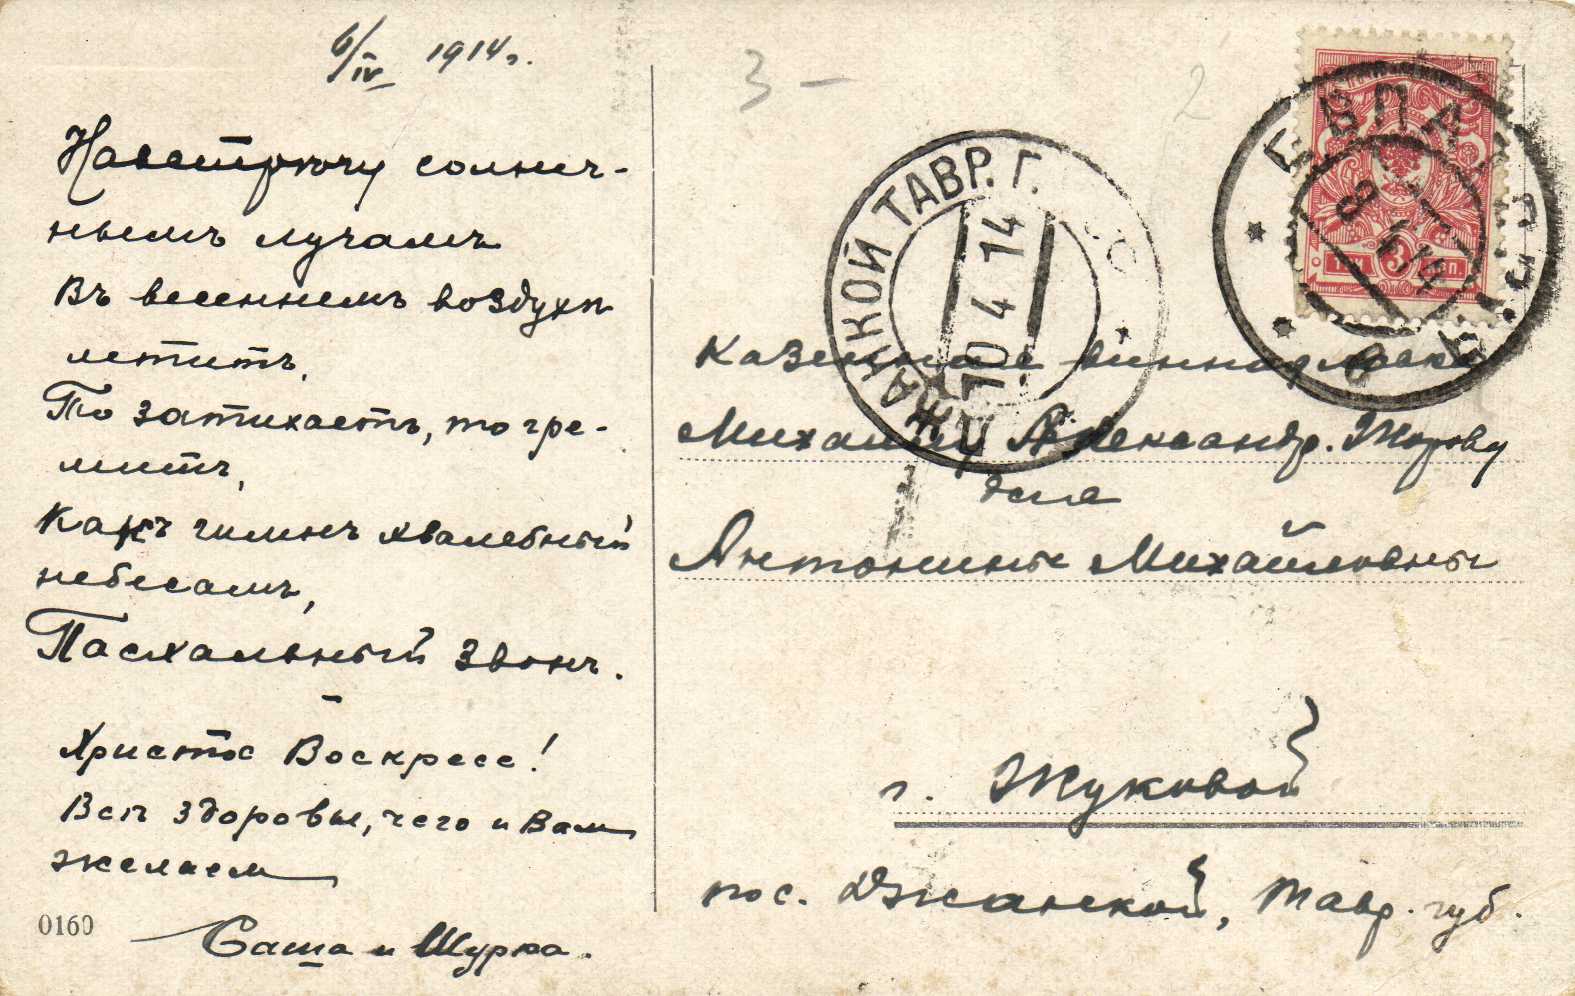 6/IV 1914 г.
Навстрѣчу солнеч-
нымъ лучамъ
Въ весеннемъ воздухѣ
летитъ,
То затихаетъ, то гре-
митъ,
Какъ гимнъ хвалебный
небесамъ,
Пасхальный звонъ.
Христос Воскресе!
Всѣ здоровы, чего и Вам
желаем
Саша и Шурка.
0160
3 –
2
ДЖАНКОЙ ТАВР. Г.
10 4 14
ЕВПАТ
8 4 14
ТРИ 3 КОП.
Казенная винная лавка
Михаилу Александр.
для
Антонины Михайловны
г. Жуковой
пос. Джанкой, Тавр. губ.